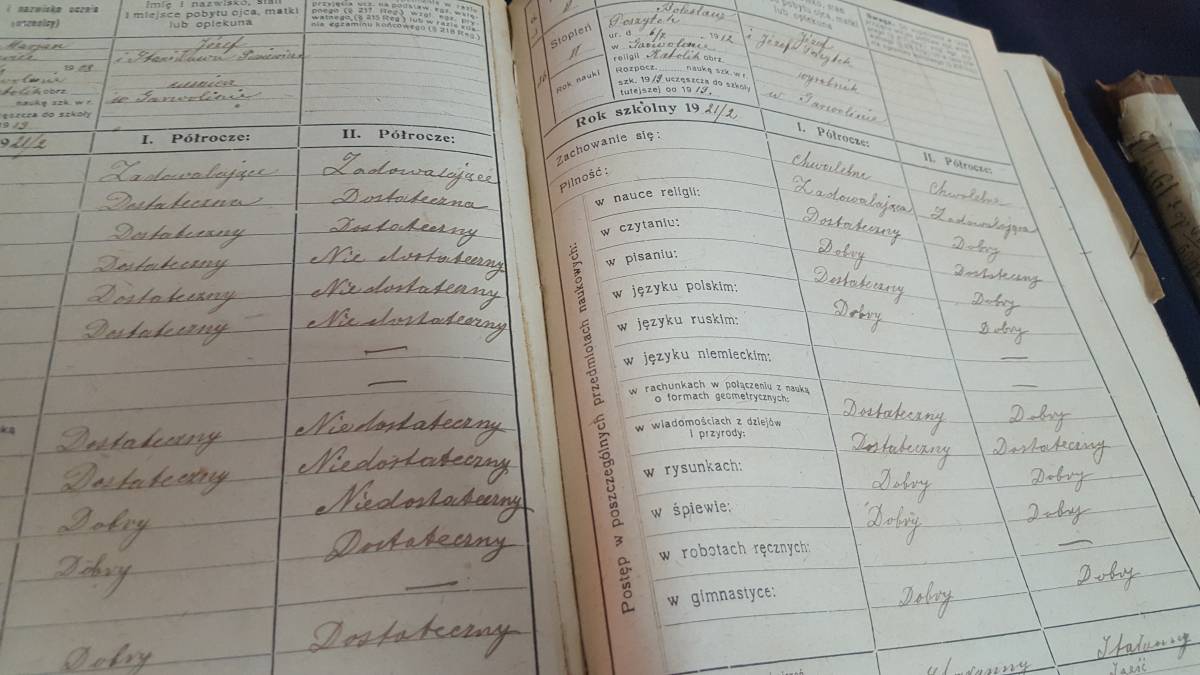 i nazwisko ucznia
(uczenicy)
Imię i nazwisko, stan
i miejsce pobytu ojca, matki
lub opiekuna
przyjęcia ucz. na podstaw. egz. wstę-
pnego (§ 237. Reg.) wzgl. egz. pry-
watnego, (§ 215 Reg.) lub w razie zło-
żenia egzaminu końcowego (§ 218 Reg.)
Marjan
Józef
i Stanisława
1908
w Garwolinie
nauką szk. w r.
uczęszcza do szkoły
1919
1921/2
I. Półrocze:
II. Półrocze:
Zadowalające
Zadowalające
Dostateczna
Dostateczna
Dostateczny
Dostateczny
Dostateczny
Nie dostateczny
Dostateczny
Nie dostateczny
Dostateczny
Nie dostateczny
—
—
Dostateczny
Niedostateczny
Dostateczny
Niedostateczny
Dobry
Niedostateczny
Dobry
Dostateczny
—
Dobry
Dostateczny
Stopień
II
Rok nauki
Bolesław
ur. d. 6/7 1912
w Garwolinie
religii Katolik obrz.
Rozpocz. naukę szk. w r.
szk. 1919 uczęszcza do szkoły
tutejszej od 1919.
i miejsce pobytu ojca, matki
lub opiekuna
Józef
i Józefa
wyrobnik
w Garwolinie
Rok szkolny 1921/2
I. Półrocze:
II. Półrocze:
Zachowanie się:
Chwalebne
Chwalebne
Pilność:
Zadowalająca
Zadowalająca
Postęp w poszczególnych przedmiotach naukowych:
w nauce religii:
Dostateczny
Dobry
w czytaniu:
Dobry
Dostateczny
w pisaniu:
Dostateczny
Dobry
w języku polskim:
Dobry
Dobry
w języku ruskim:
—
w języku niemieckim:
—
w rachunkach w połączeniu z nauką
o formach geometrycznych:
Dostateczny
Dobry
w wiadomościach z dziejów
i przyrody:
Dostateczny
Dostateczny
w rysunkach:
Dobry
Dobry
w śpiewie:
Dobry
Dobry
w robotach ręcznych:
—
w gimnastyce:
Dobry
Dobry